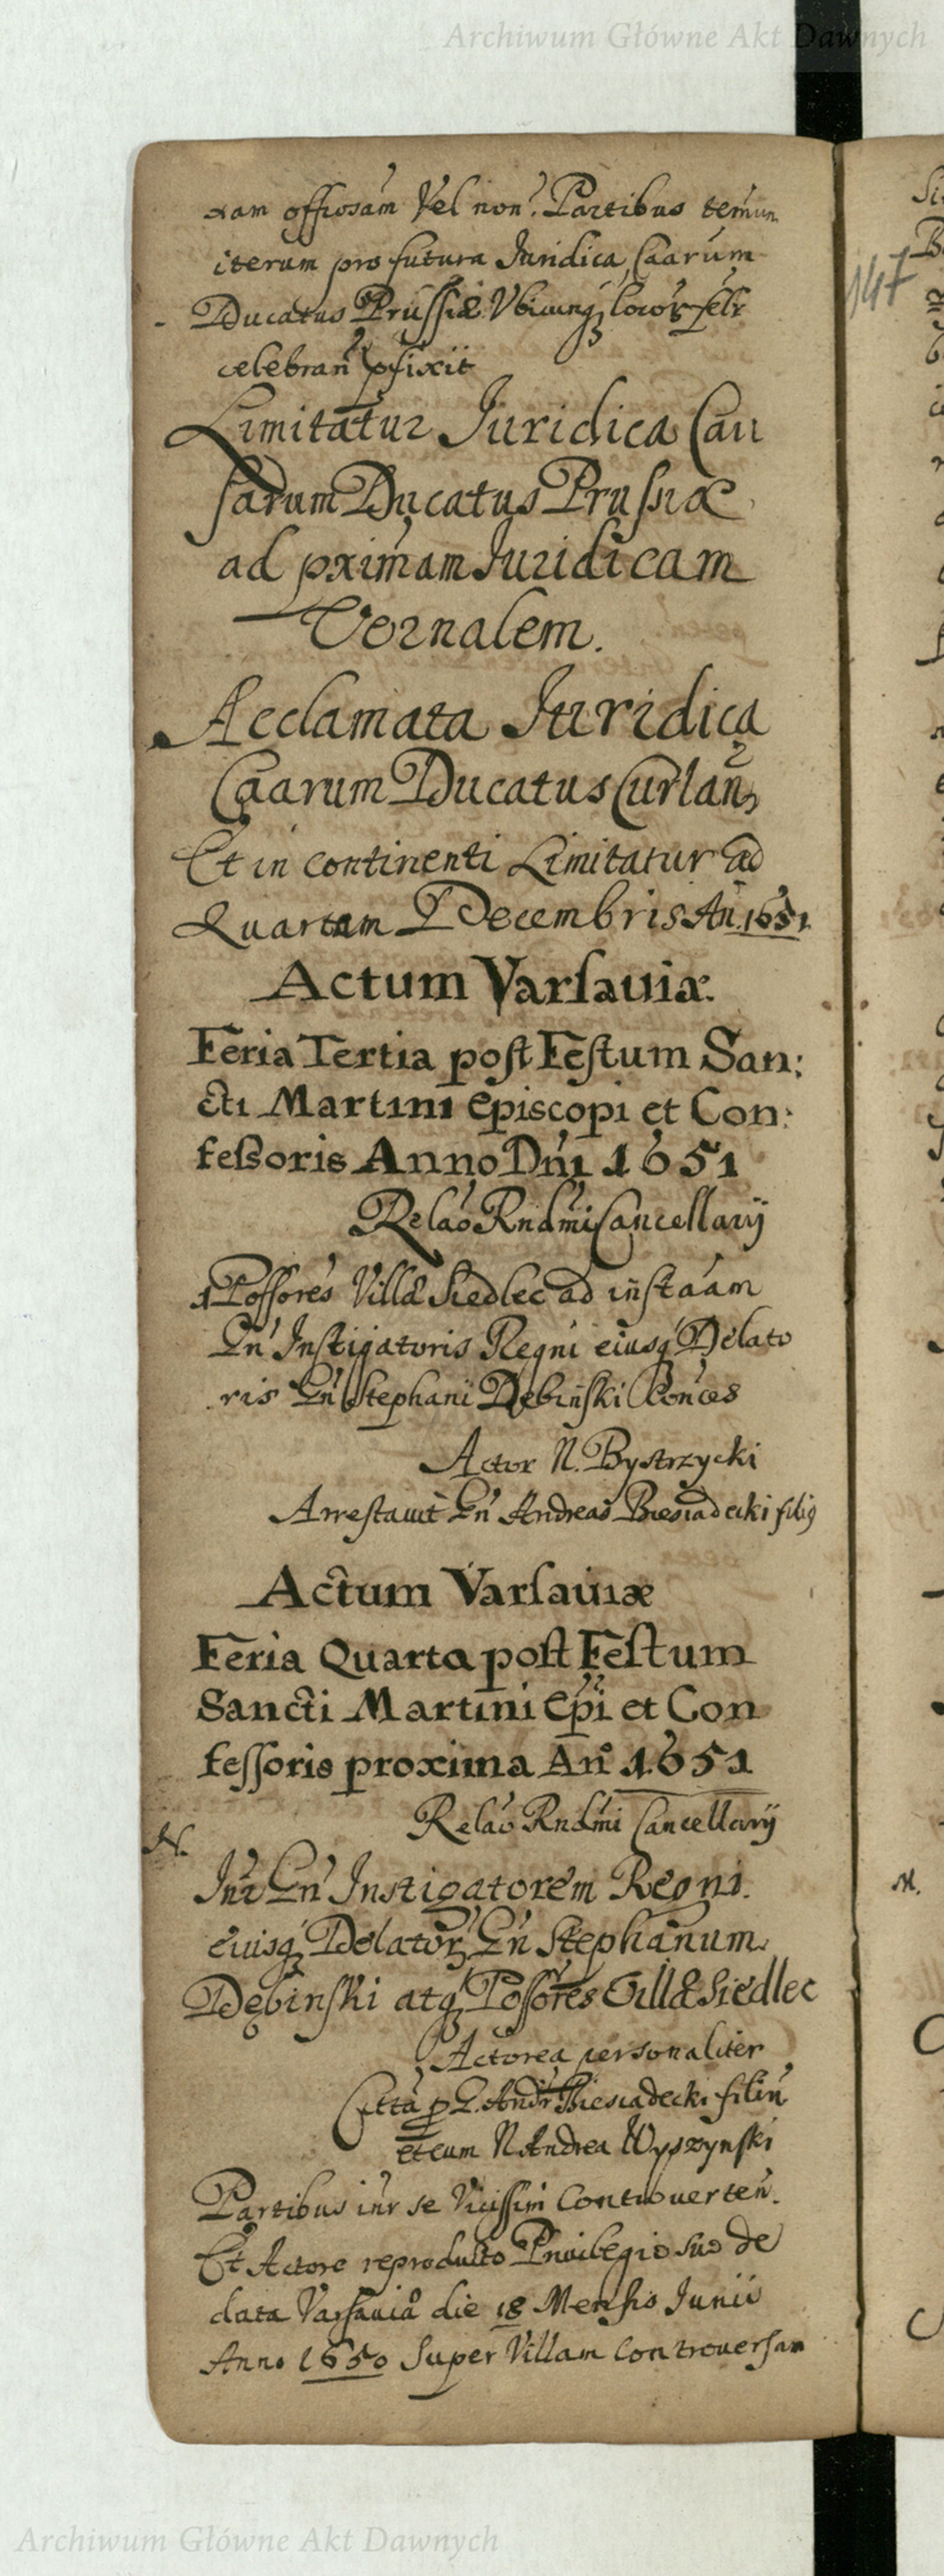 Archiwum Główne Akt Dawnych
offiosam Vel non. Partibus
iterum pro futura Iuridica Caarum
Ducatus Prussiæ Vbicunq locor
celebran pfixit
Limitatur Iuridica Cau
sarum Ducatus Prussiæ
ad pximam Iuridicam
Vernalem.
Acclamata Iuridica
Caarum Ducatus Curlan
Et in continenti Limitatur ad
Quartam Decembris An. 1651.
Actum Varsauiæ.
Feria Tertia post Festum San:
cti Martini Episcopi et Con:
fessoris Anno Dni 1651
Relao Rndmi Cancellarij
Possores Villæ Siedlec ad instaam
Gn Instigatoris Regni eiusq Delato
ris Gn Stephani Dębinski
Actor N. Bystrzycki
Arrestauit Gn Andreas Biesiadecki filig
Actum Varsauiæ
Feria Quarta post Festum
Sancti Martini Epi et Con
fessoris proxima Ano 1651
Relao Rndmi Cancellarij
N.
Intr Gn Instigatorem Regni.
eiusq Delator Gn Stephanum
Dębinski atq Possores Villæ Siedlec
Actorea personaliter
Citta p G. Andr Biesiadecki filiu
et cum N Andrea Wyszynski
Partibus intr se Vicissim Controuerten.
Et Actore reproducto Priuilegio suo de
data Varsauiæ die 18 Mensis Junii
Anno 1650 Super Villam Controuersam
147
N.
Archiwum Główne Akt Dawnych